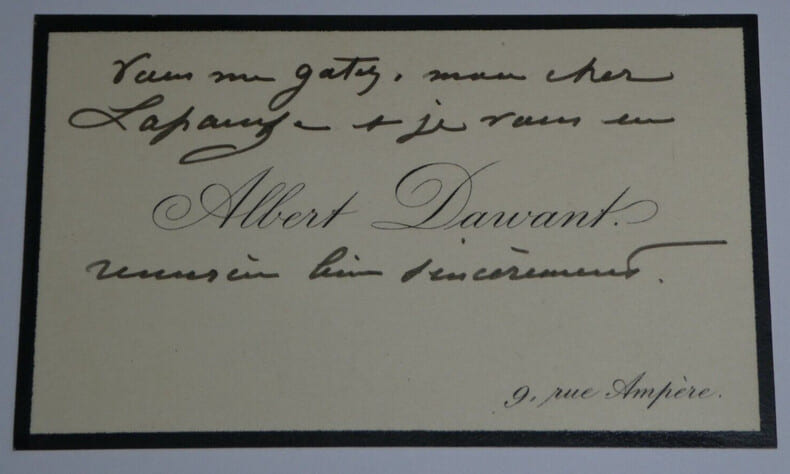 Vous me gatez, mon cher
Lapauze et je vous en
Albert Dawant.
remercie bien sincèrement.
9, rue Ampère.